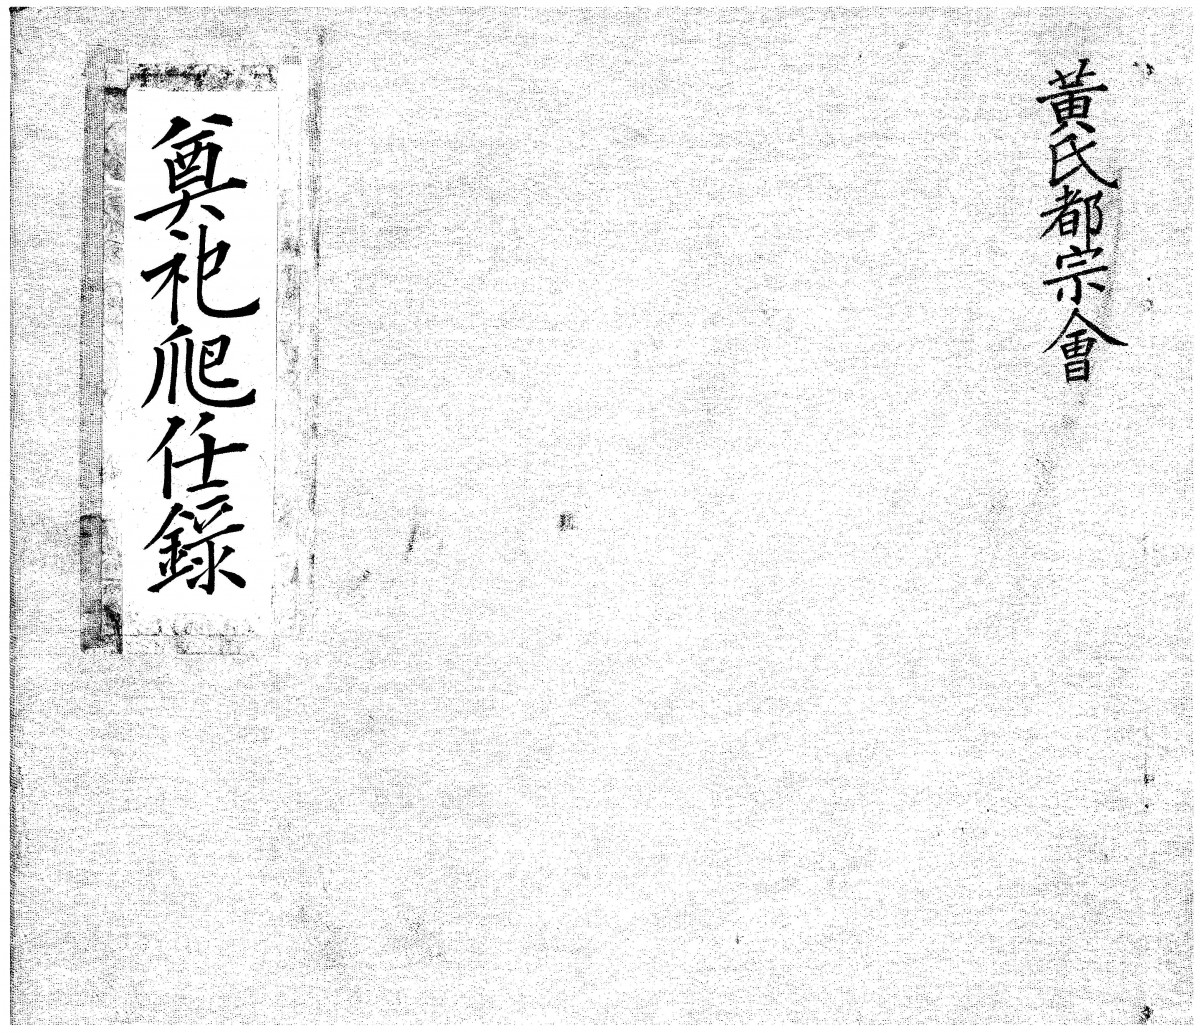 黃氏都宗會
奠祀爬任錄